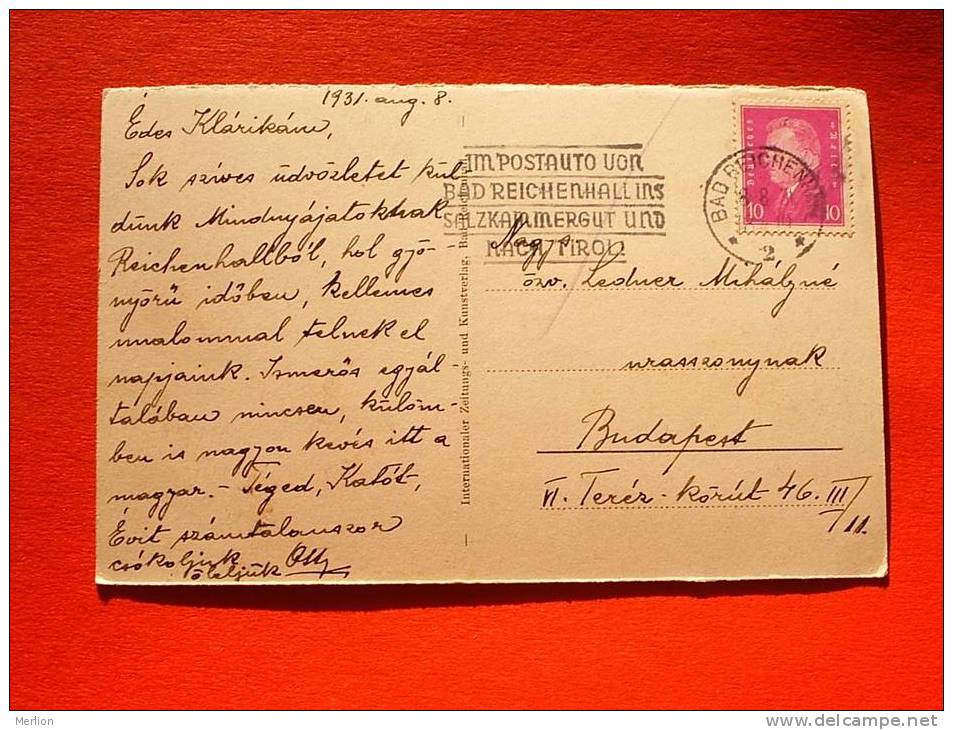 1931. aug. 8.
Édes Klárikám,
Sok szives üdvözletet kül-
dünk Mindnyájatoknak
Reichenhallból, hol gyö-
nyörű időben, kellemes
unalommal telnek el
napjaink. Ismerős egyál-
talában nincsen, külöm-
ben is nagyon kevés itt a
magyar. - Téged, Katót,
Évit számtalanszor
csókoljuk
öleljük
Internationaler Zeitungs- und Kunstverlag, Bad Reichenhall
IM POSTAUTO VON
BAD REICHENHALL INS
SALZKAMMERGUT UND
NACH TIROL
BAD REICHENHALL
2
Deutsches Reich
10 10
Nags.
özv. Ledner Mihályné
uraszonynak
Budapest
VI. Teréz-körút 46. III/11.
Merlion
www.delcampe.net